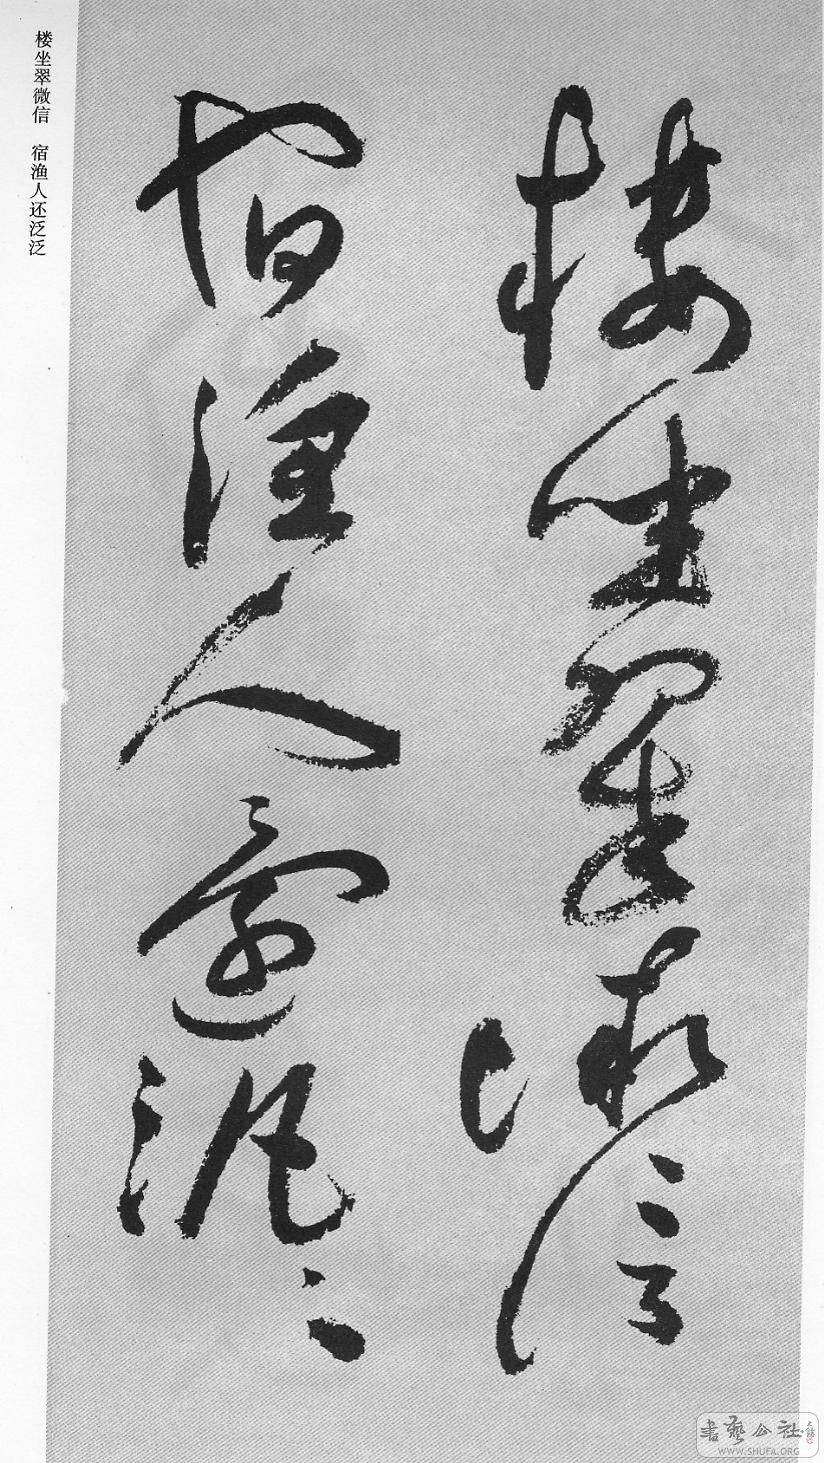 樓坐翠微信
宿漁人還泛〻
楼坐翠微信　宿渔人还泛泛
書藝公社
WWW.SHUFA.ORG